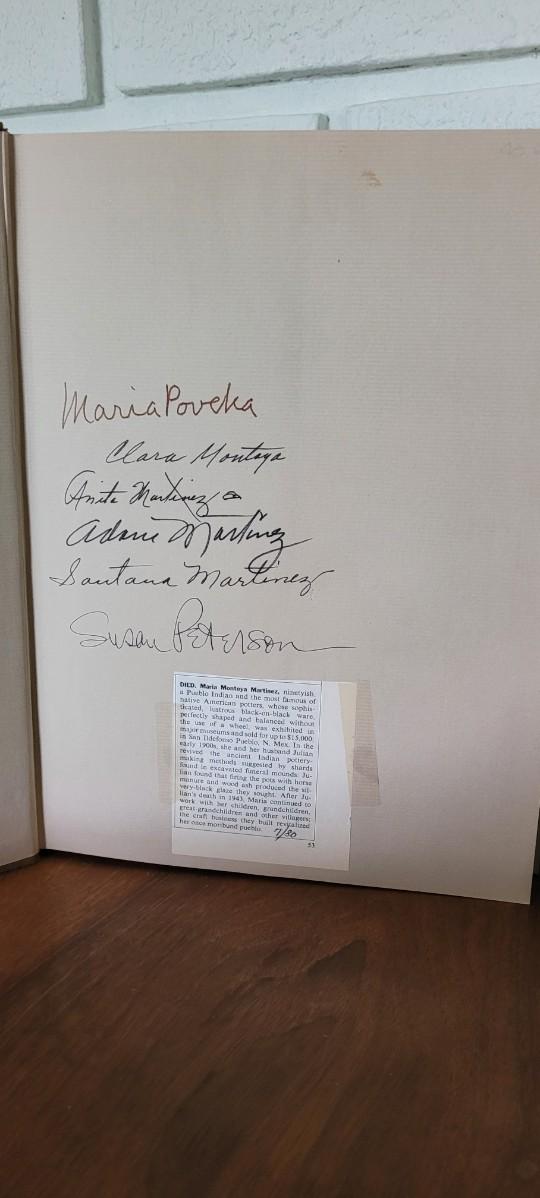 Maria Poveka
Clara Montoya
Anita Martinez
Adam Martinez
Santana Martinez
Susan Peterson
DIED. Maria Montoya Martinez, ninetyish,
a Pueblo Indian and the most famous of
native American potters, whose sophis-
ticated, lustrous black-on-black ware,
perfectly shaped and balanced without
the use of a wheel, was exhibited in
major museums and sold for up to $15,000;
in San Ildefonso Pueblo, N. Mex. In the
early 1900s, she and her husband Julian
revived the ancient Indian pottery-
making methods suggested by shards
found in excavated funeral mounds. Ju-
lian found that firing the pots with horse
manure and wood ash produced the sil-
very-black glaze they sought. After Ju-
lian's death in 1943, Maria continued to
work with her children, grandchildren,
great-grandchildren and other villagers;
the craft business they built revitalized
her once moribund pueblo. 7/80
53